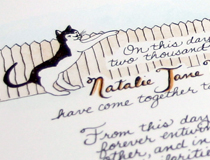 On this day
two thousand
Natalie Jane
have come together t
From this day
forever entwin
ther, and in